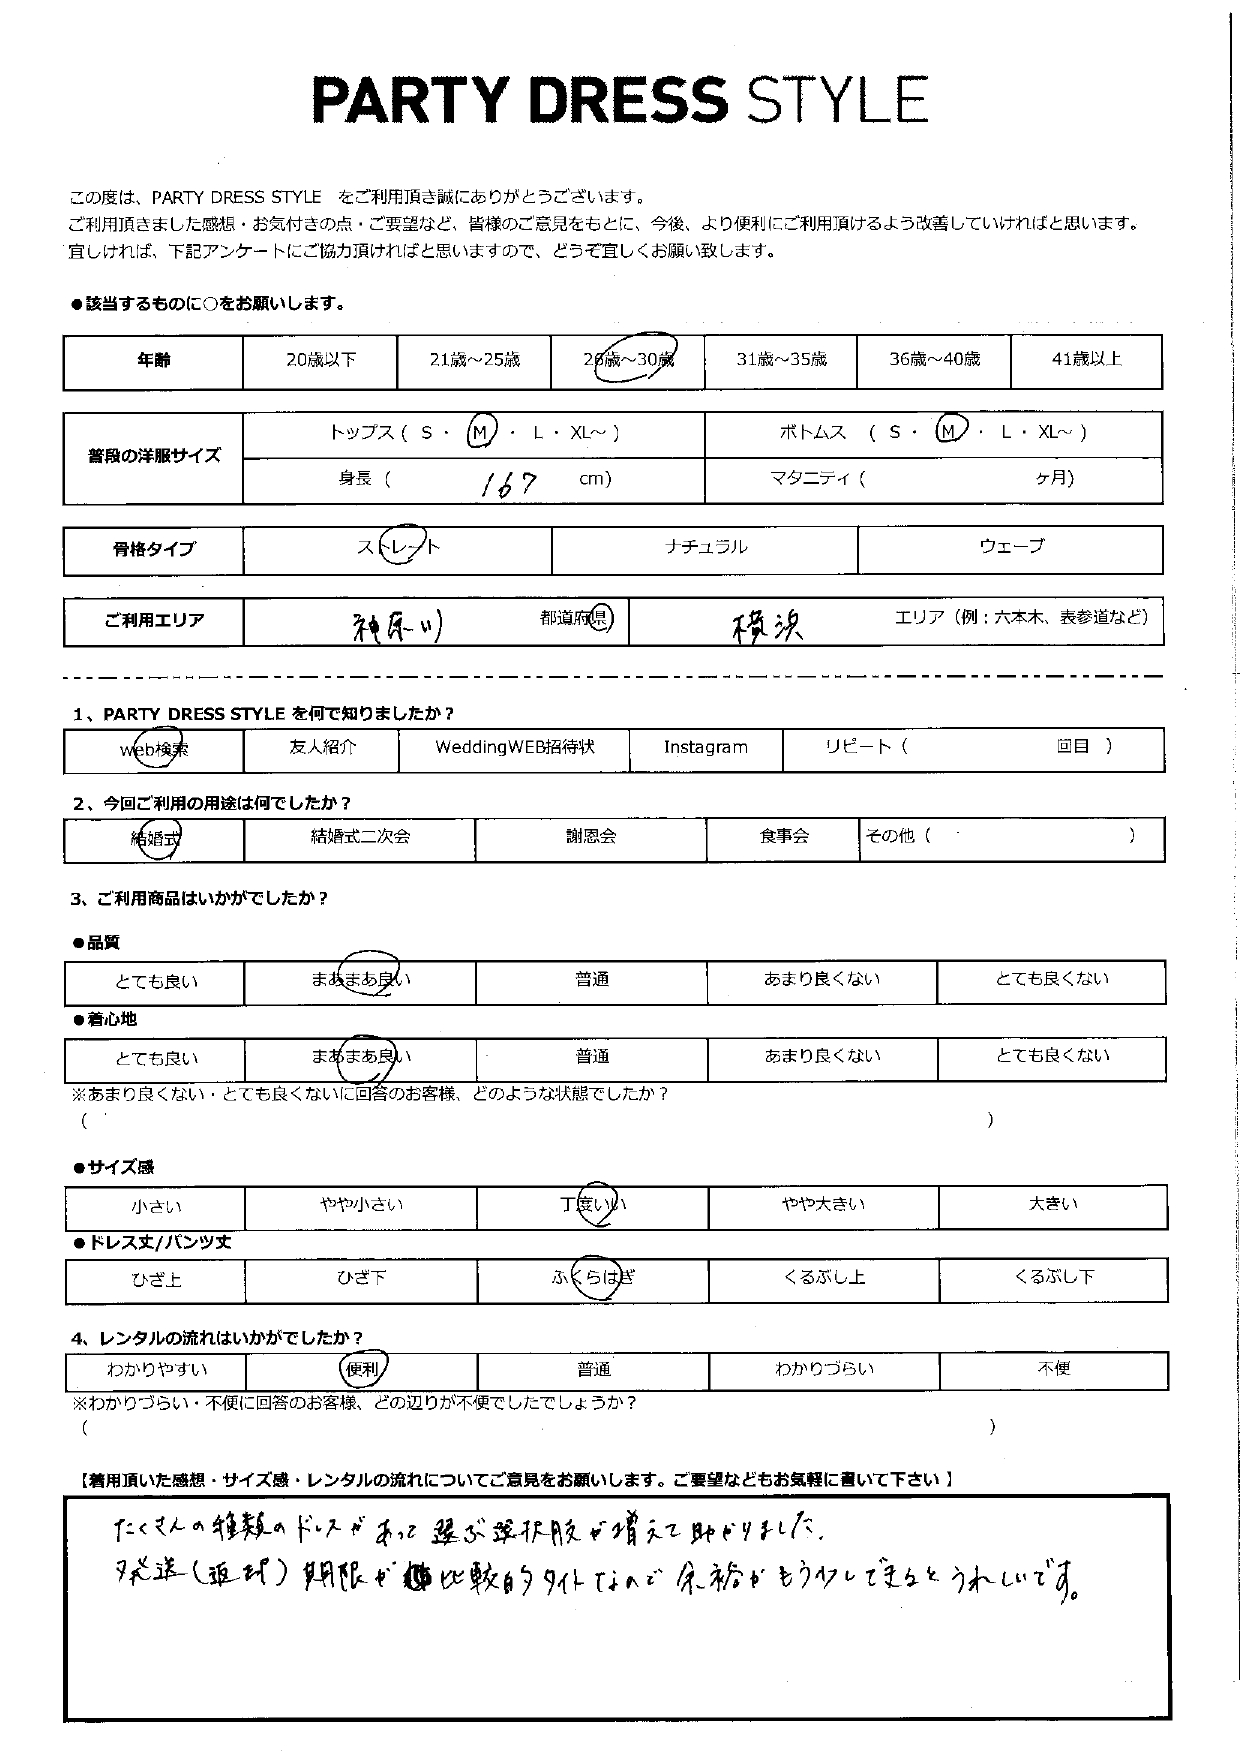 PARTY DRESS STYLE
この度は、PARTY DRESS STYLE をご利用頂き誠にありがとうございます。
ご利用頂きました感想・お気付きの点・ご要望など、皆様のご意見をもとに、今後、より便利にご利用頂けるよう改善していければと思います。
宜しければ、下記アンケートにご協力頂ければと思いますので、どうぞ宜しくお願い致します。
●該当するものに○をお願いします。
年齢 20歳以下 21歳～25歳 26歳～30歳 31歳～35歳 36歳～40歳 41歳以上
普段の洋服サイズ トップス ( S ・ M ・ L ・ XL～ ) ボトムス ( S ・ M ・ L ・ XL～ )
身長 ( 167 cm) マタニティ ( ヶ月)
骨格タイプ ストレート ナチュラル ウェーブ
ご利用エリア 神奈川 都道府県 横浜 エリア (例：六本木、表参道など)
1、PARTY DRESS STYLE を何で知りましたか？
web検索 友人紹介 WeddingWEB招待状 Instagram リピート ( 回目 )
2、今回ご利用の用途は何でしたか？
結婚式 結婚式二次会 謝恩会 食事会 その他 ( )
3、ご利用商品はいかがでしたか？
●品質
とても良い まあまあ良い 普通 あまり良くない とても良くない
●着心地
とても良い まあまあ良い 普通 あまり良くない とても良くない
※あまり良くない・とても良くないに回答のお客様、どのような状態でしたか？
( )
●サイズ感
小さい やや小さい 丁度いい やや大きい 大きい
●ドレス丈/パンツ丈
ひざ上 ひざ下 ふくらはぎ くるぶし上 くるぶし下
4、レンタルの流れはいかがでしたか？
わかりやすい 便利 普通 わかりづらい 不便
※わかりづらい・不便に回答のお客様、どの辺りが不便でしたでしょうか？
( )
【着用頂いた感想・サイズ感・レンタルの流れについてご意見をお願いします。ご要望などもお気軽に書いて下さい】
たくさんの種類のドレスがあって選ぶ選択肢が増えて助かりました。
発送(返却)期限が比較的タイトなので余裕がもう少しできるとうれしいです。